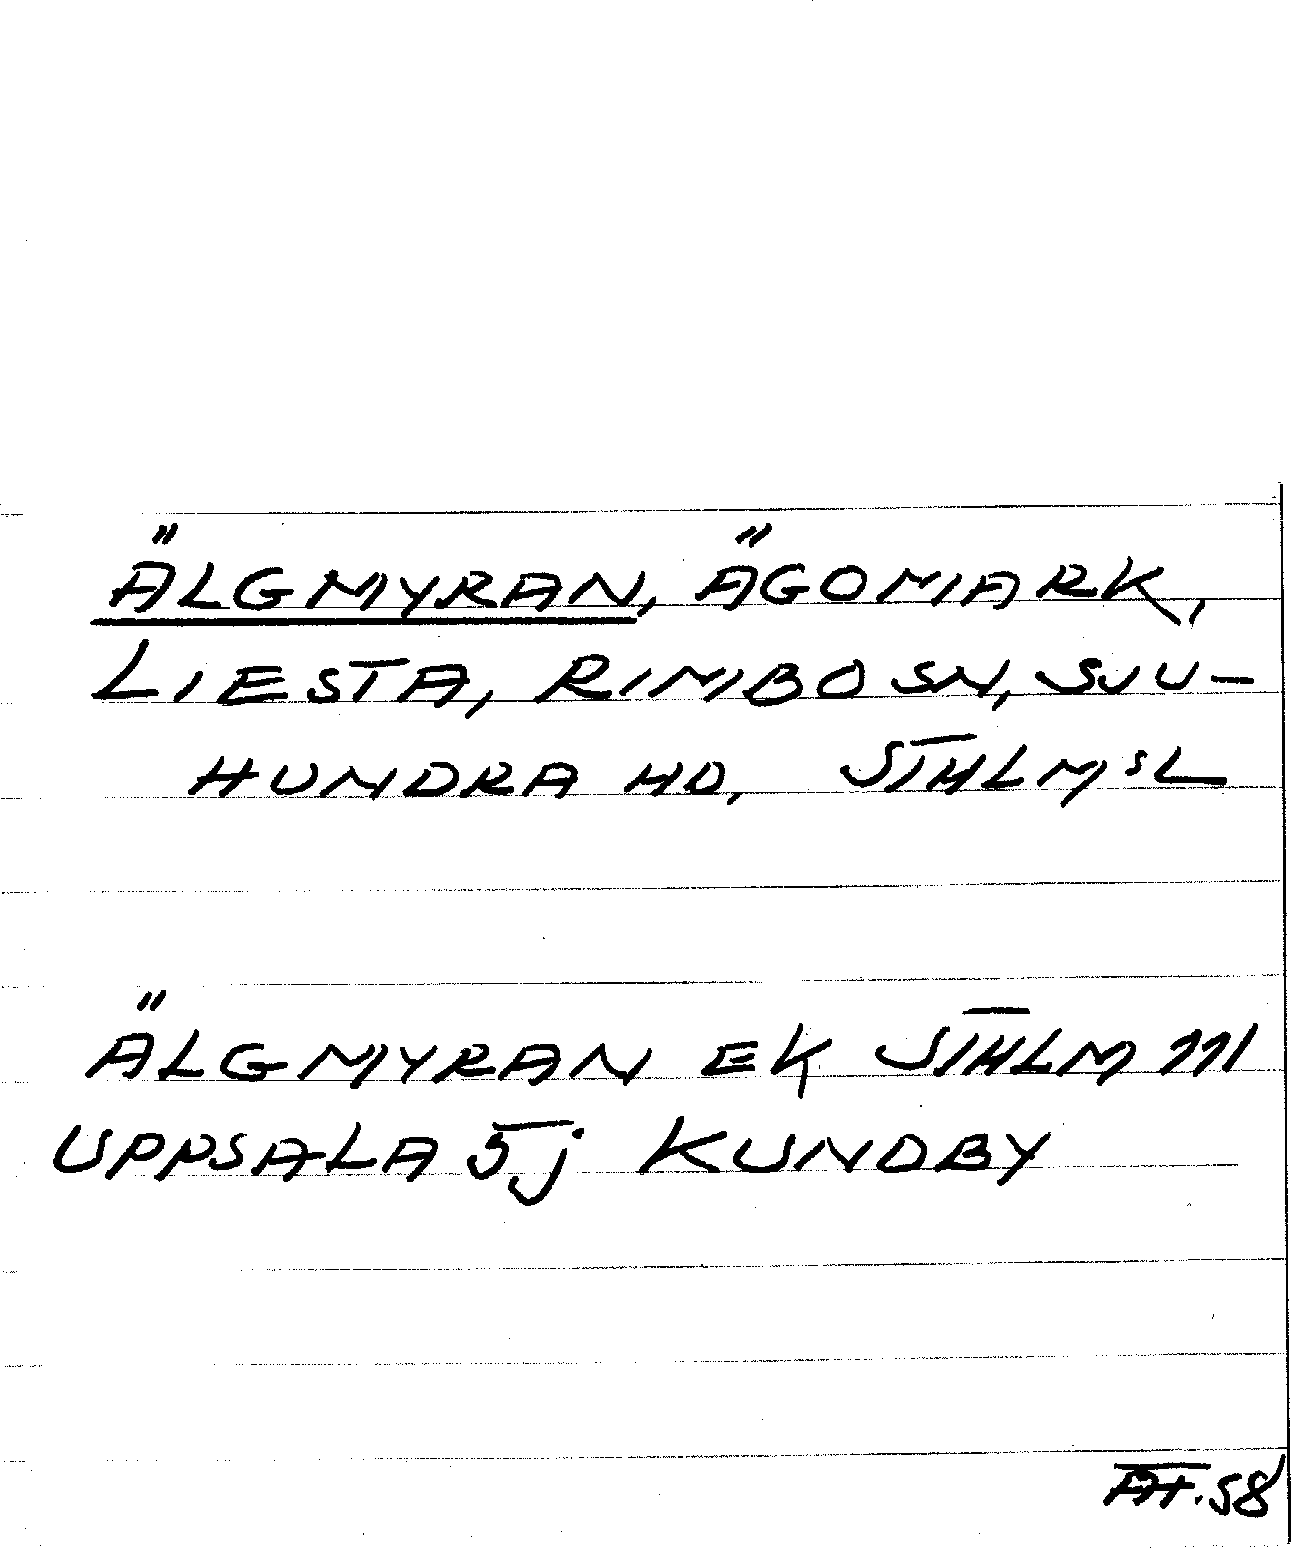 ÄLGMYRAN, ÄGOMARK,
LIESTA, RIMBO SN, SJU-
HUNDRA HD, STHLMSL
ÄLGMYRAN EK STHLM 111
UPPSALA 5j KUNDBY